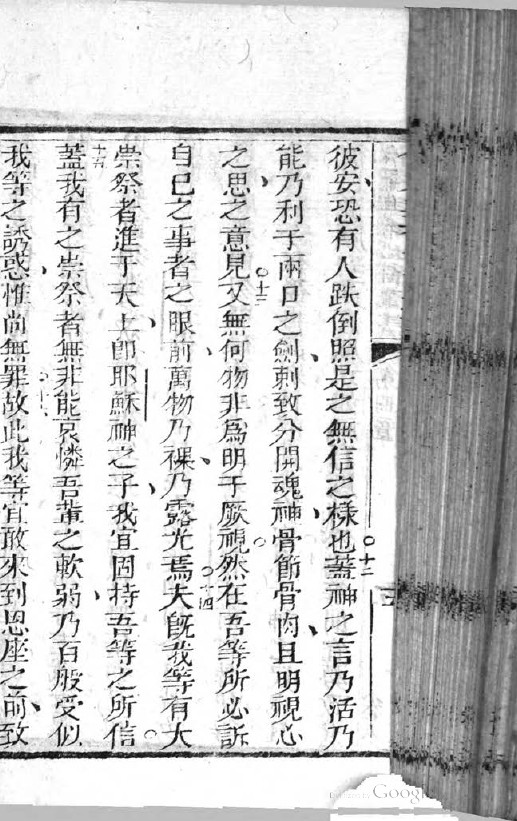 彼安恐有人跌倒照是之無信之樣也○十二蓋神之言乃活乃
能乃利于兩口之劍刺致分開魂神骨節骨肉且明視心
之思之意見○十三又無何物非爲明于厥視○然在吾等所必訴
自己之事者之眼前萬物乃祼乃露光焉○十四夫旣我等有大
崇祭者進于天上卽耶穌神之子我宜固持吾等之所信○
十五蓋我有之崇祭者無非能哀憐吾輩之軟弱乃百般受似
我等之誘惑惟尚無罪○十六故此我等宜敢來到恩座之前致
Google